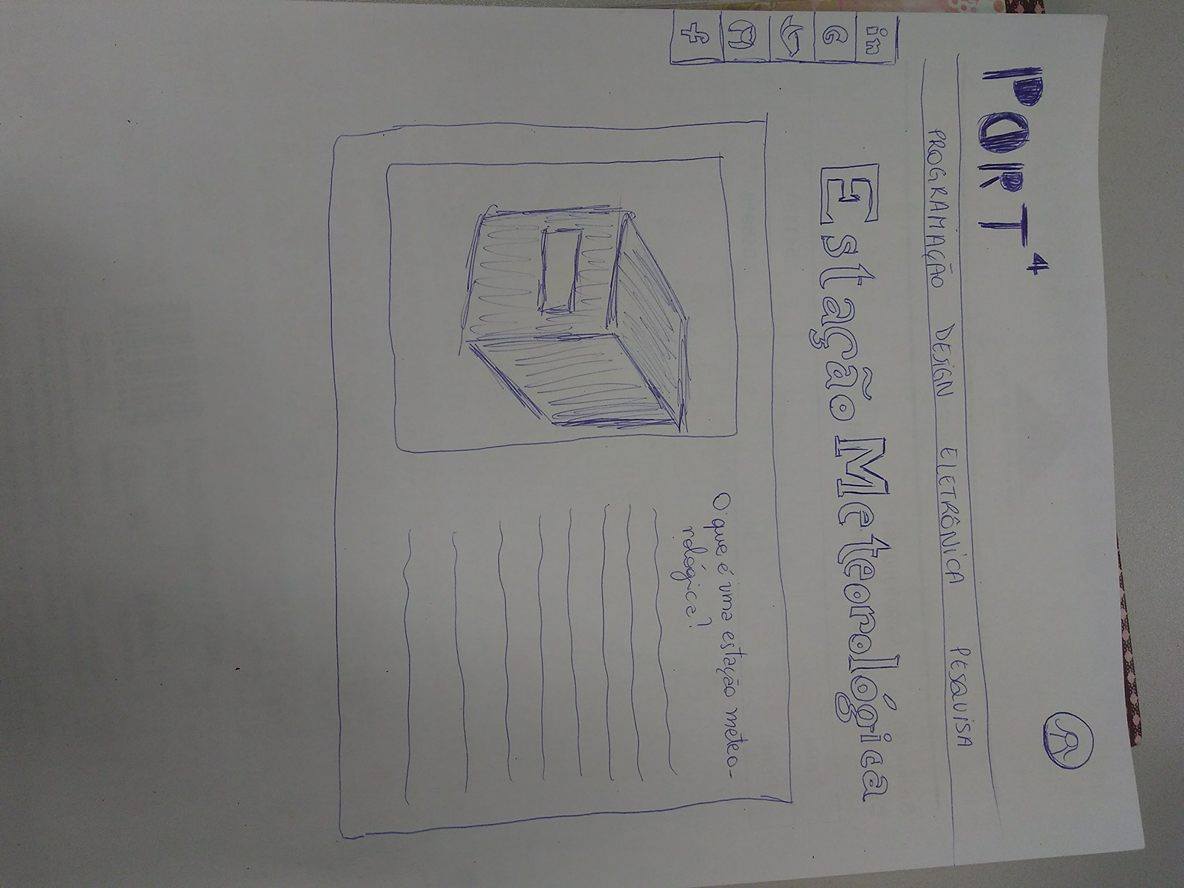 PORT⁴
PROGRAMAÇÃO DESIGN ELETRÔNICA PESQUISA
in
G
f
Estação Meteorológica
O que é uma estação meteo-
rológica?